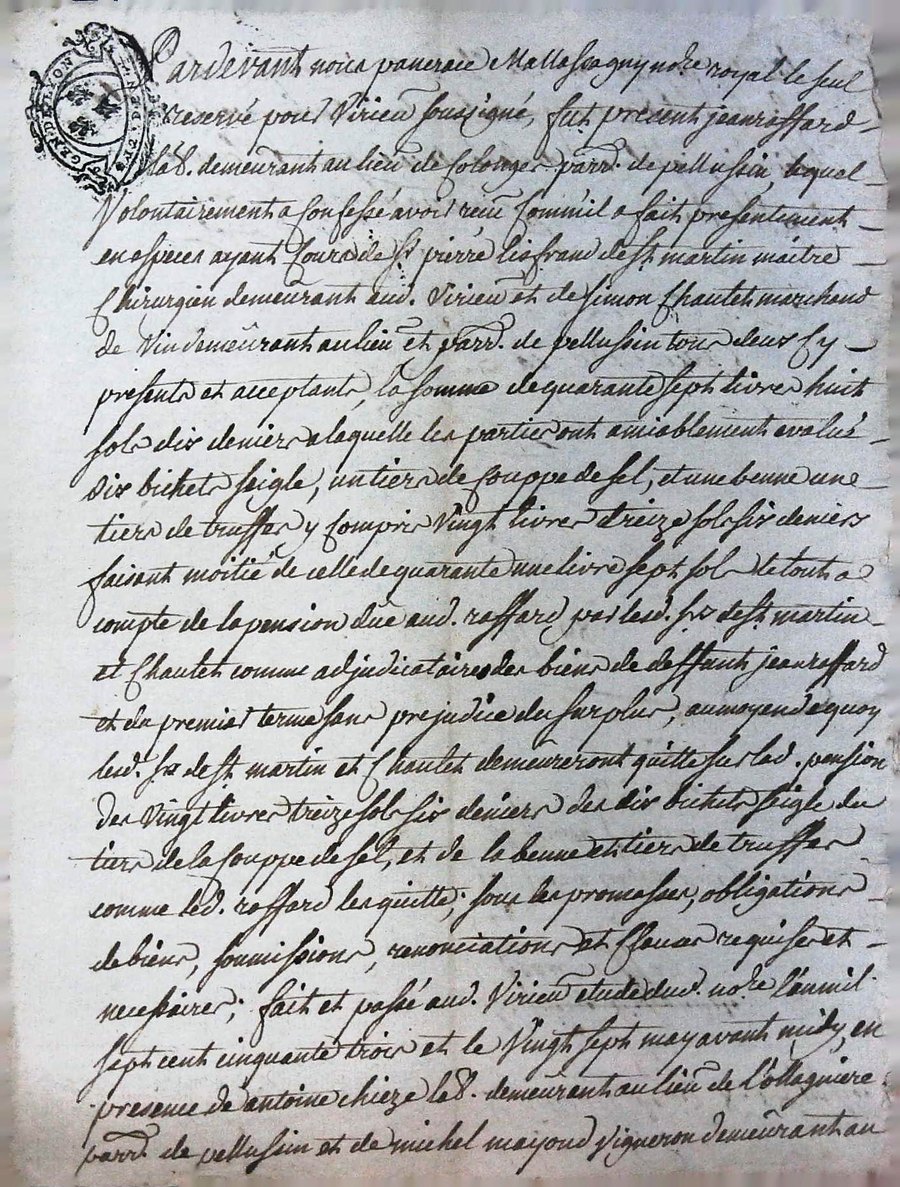 GEN. DE LYON
Pardevant nous pancrace Mallassagny no.re royal le seul
reservé pour Virieu soussigné, fut présent jean raffard
lab. demeurant au lieu de Colonges parr. de pellussin, lequel
Volontairement a Confessé avoir reçu Comm'il a fait présentement
en especes ayant Cours de Sr pierre lisfranc de St martin maitre
Chirurgien demeurant aud. Virieu et de Simon Chautet marchand
de Vin demeurant au lieu et parr. de pellussin tous deux Cy
présents et acceptants, la somme de quarante sept livres huit
sols dix deniers a laquelle les parties ont amiablement evalué
dix bichets seigle, un tiers de Couppe de sel, et une benne une
tiers de truffes y Compris Vingt livres treize sols six deniers
faisant moitié de celle de quarante une livre sept sols le tout a
compte de la pension due aud. raffard par lesd. srs de St martin
et Chautet comme adjudicataires des biens de deffunt jean raffard
et du premier terme sans prejudice du surplus, au moyen de quoy
lesd. srs de St martin et Chautet demeureront quitte sur lad. pension
des Vingt livres treize sols six deniers des dix bichets seigle du
tiers de la Couppe de sel, et de la benne et tiers de truffes
comme led. raffard les quitte; sous les promesses, obligations
de biens, soumissions, renonciations et Clauses requises et
necessaires; fait et passé aud. Virieu etude dud. no.re l'an mil
sept cent cinquante trois et le Vingt sept may avant midy, en
presence de antoine chieze lab. demeurant au lieu de l'ollagniere
parr. de pellussin et de michel mayoud Vigneron demeurant au